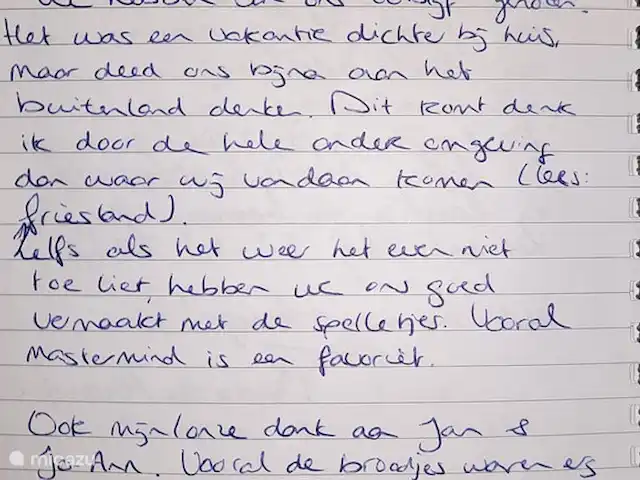 Het was een vakantie dichte bij huis,
maar deed ons bijna aan het
buitenland denken. Dit komt denk
ik door de hele ander omgeving
dan waar wij vandaan komen (lees:
friesland).
Zelfs als het weer het even niet
toe liet, hebben we ons goed
vermaakt met de spelletjes. Vooral
Mastermind is een favoriet.
Ook mijn/onze dank aa Jan &
Jo Ann. Vooral de broodjes waren
micazu